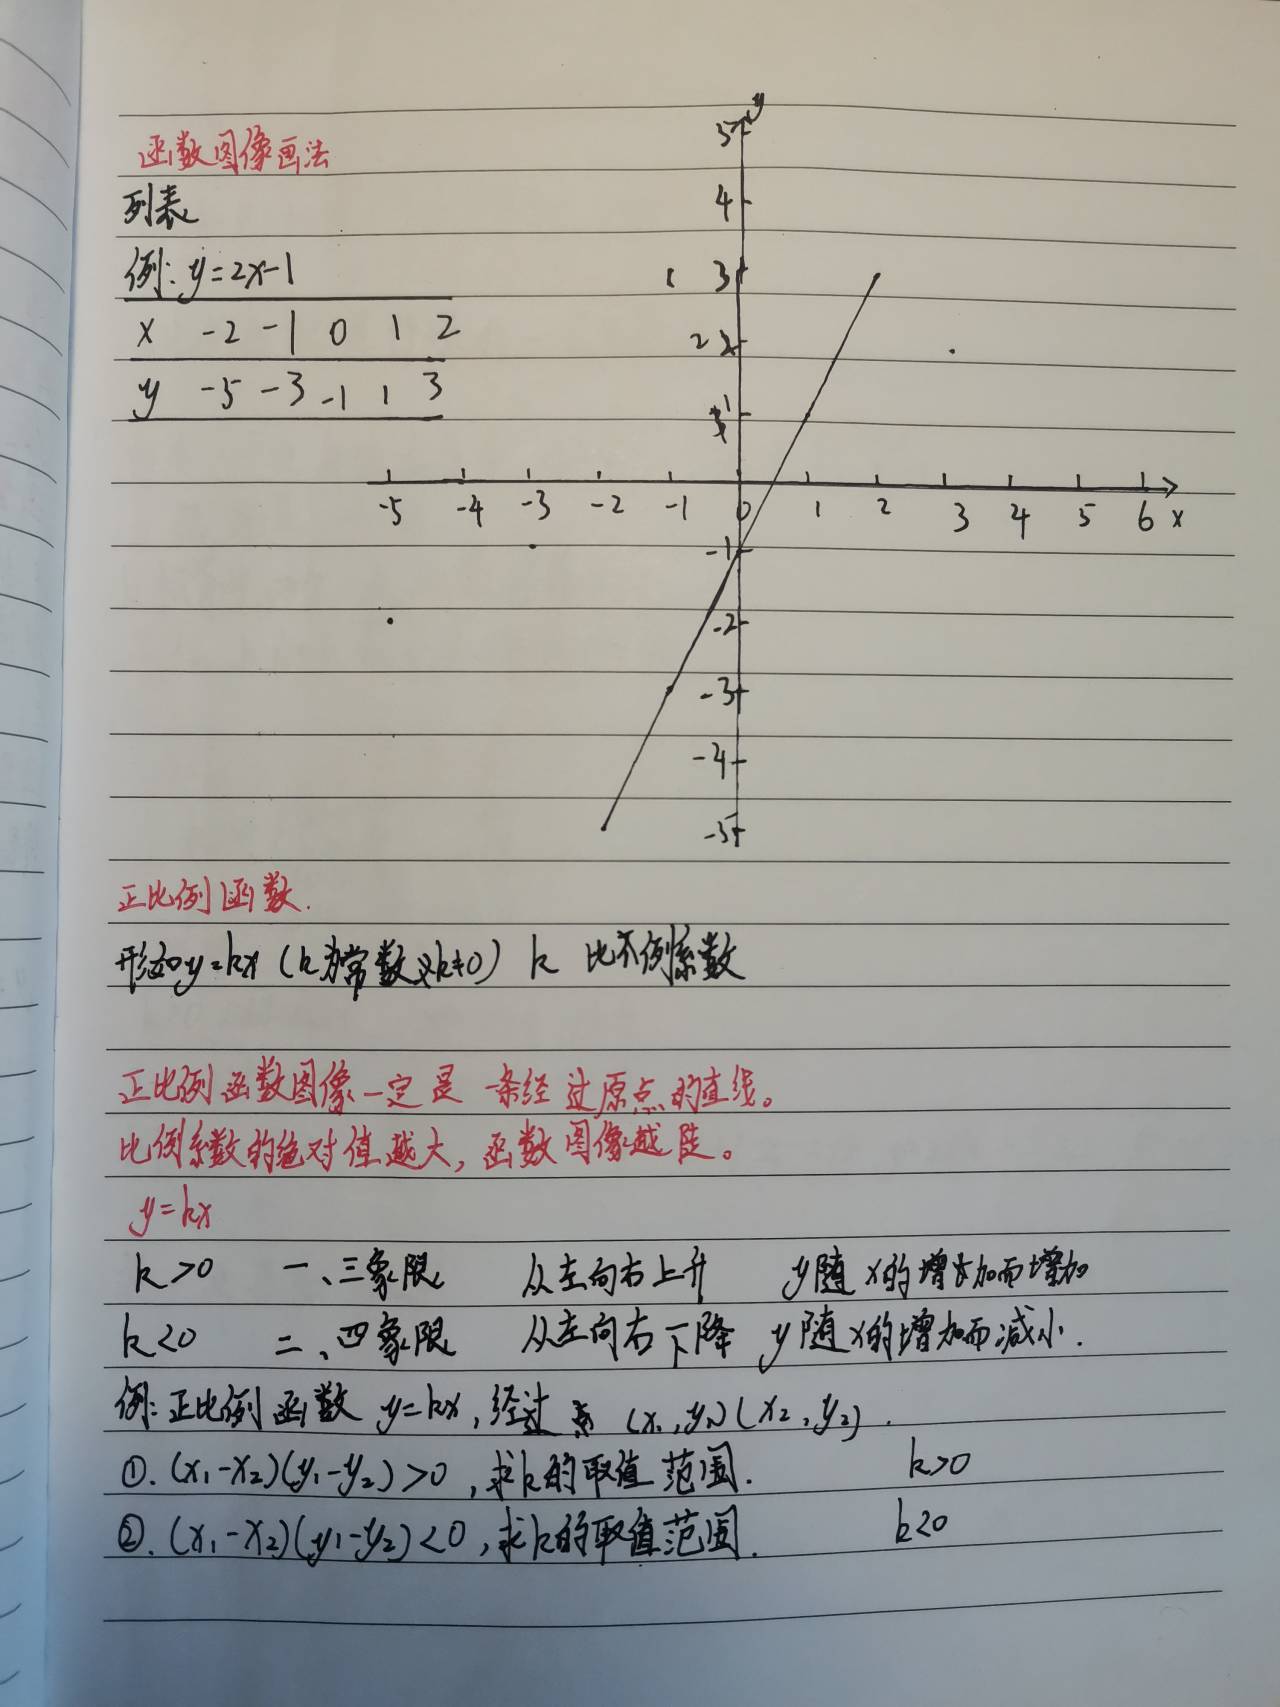 函数图像画法
列表
例: y=2x-1
x -2 -1 0 1 2
y -5 -3 -1 1 3
y
5
4
3
2 2
1
-5 -4 -3 -2 -1 0 1 2 3 4 5 6 x
-1
-2
-3
-4
-5
正比例函数.
形如y=kx (k为常数,且k≠0) k 比例系数
正比例函数图像一定是一条经过原点的直线。
比例系数的绝对值越大,函数图像越陡。
y=kx
k>0 一、三象限 从左向右上升 y随x的增加而增加
k<0 二、四象限 从左向右下降 y随x的增加而减小.
例:正比例函数 y=kx,经过 (x₁,y₁)(x₂,y₂).
①.(x₁-x₂)(y₁-y₂)>0,求k的取值范围. k>0
②.(x₁-x₂)(y₁-y₂)<0,求k的取值范围. k<0